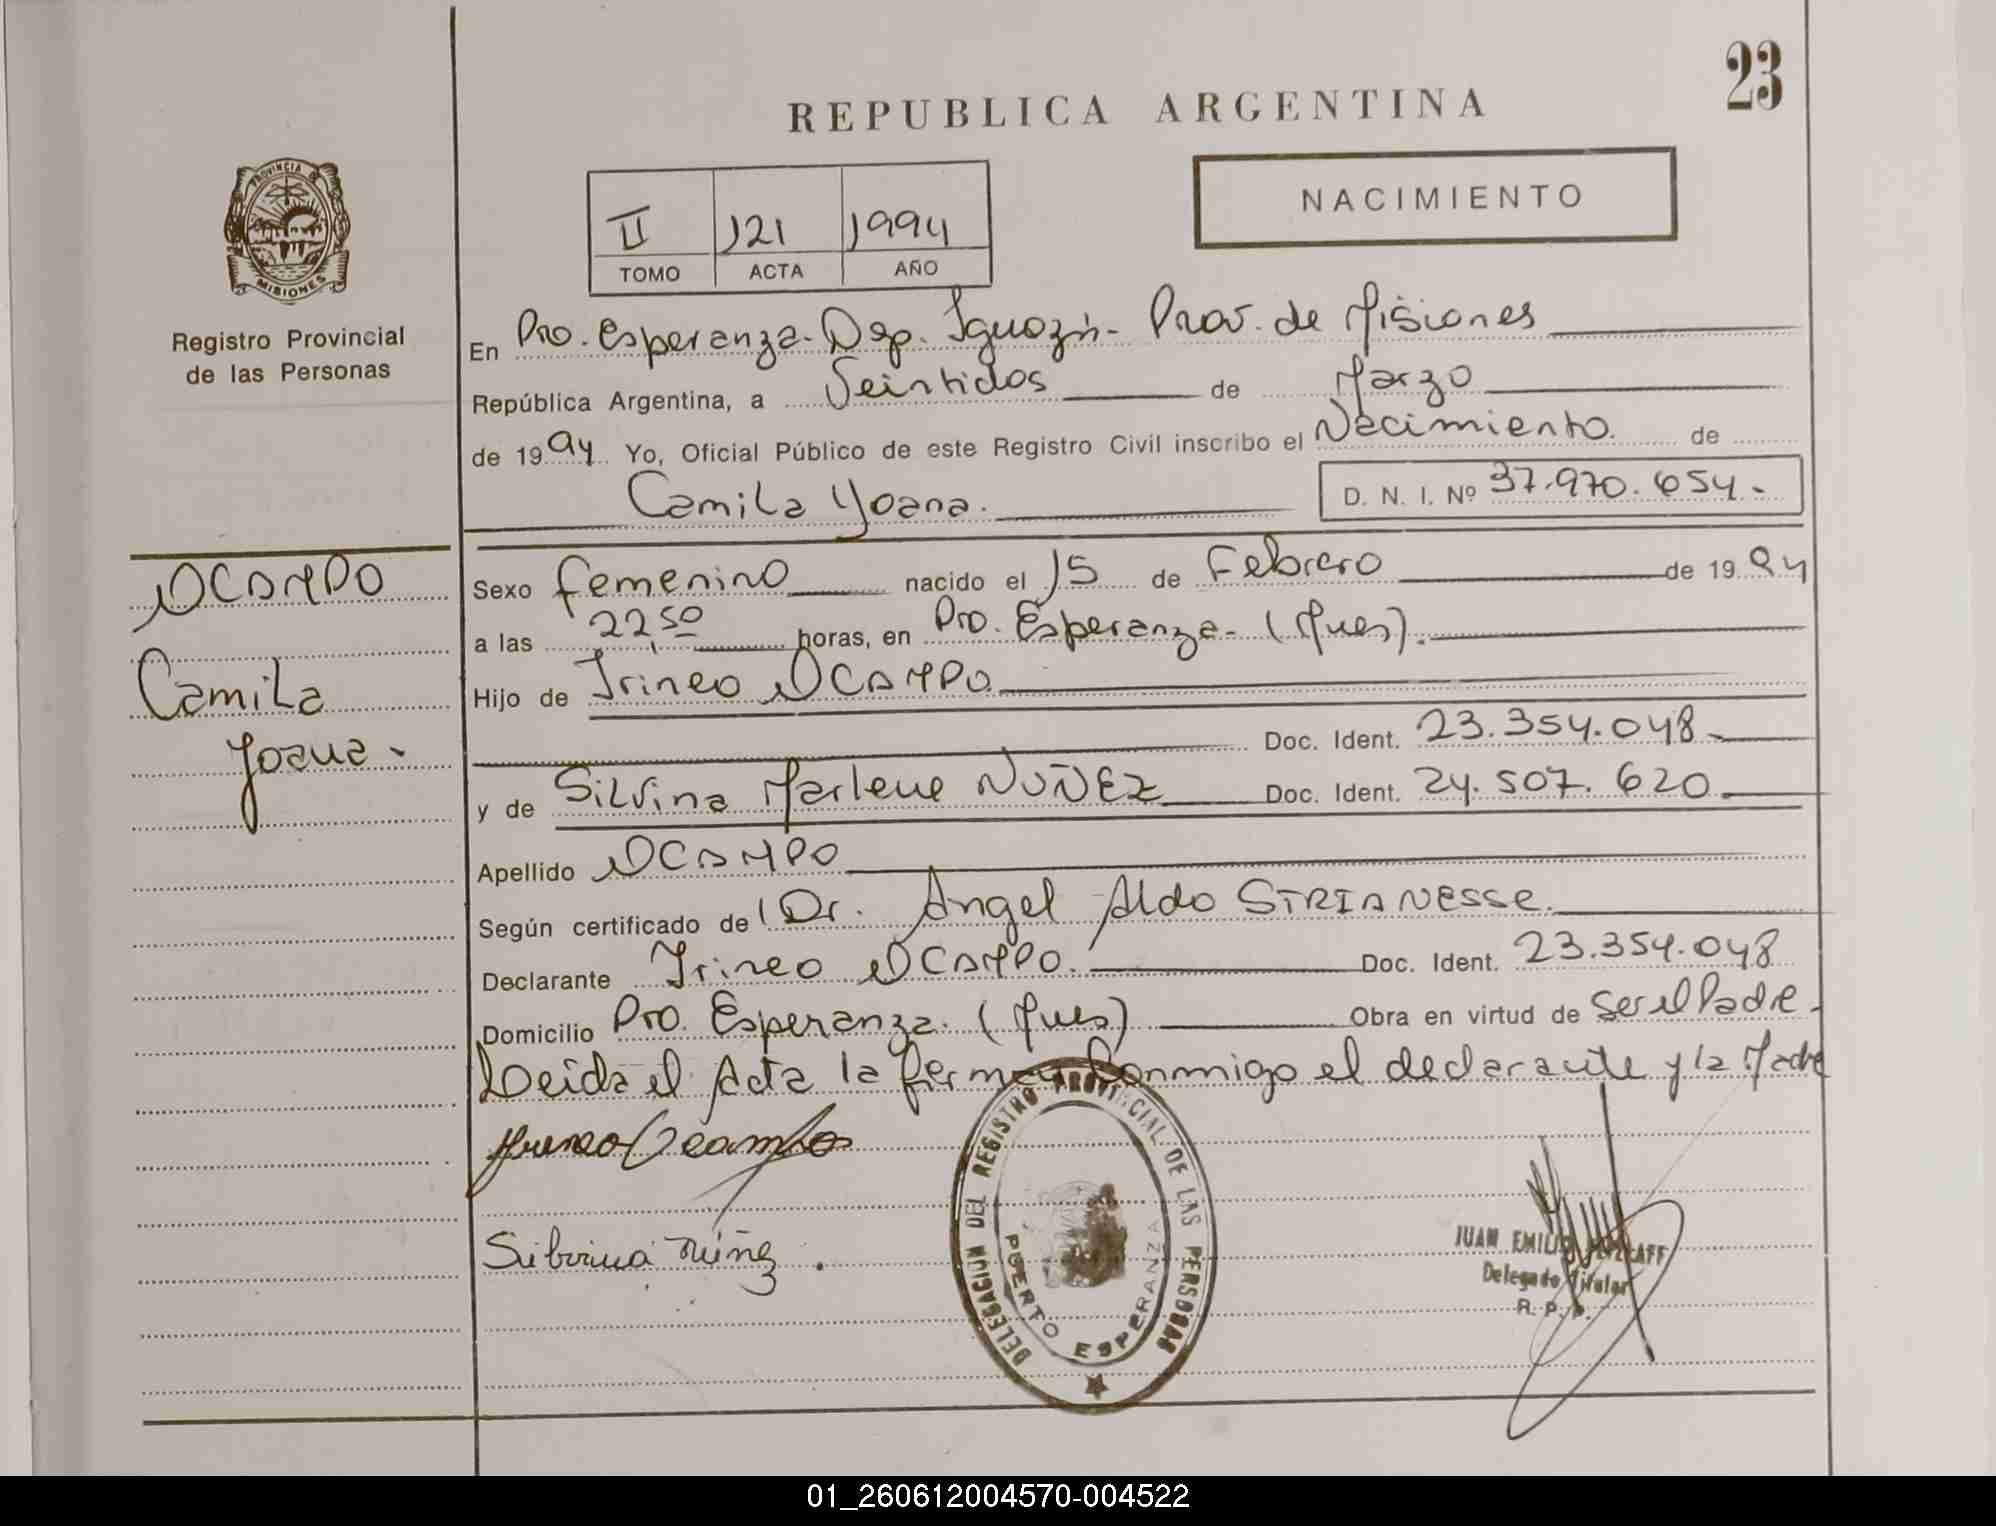 23
REPUBLICA ARGENTINA
PROVINCIA DE
MISIONES
Registro Provincial
de las Personas
II 121 1994
TOMO ACTA AÑO
NACIMIENTO
En Pto. Esperanza - Dep. Iguazú - Prov. de Misiones
República Argentina, a Veintidos de Marzo
de 1994 Yo, Oficial Público de este Registro Civil inscribo el Nacimiento. de
Camila Yoana.
D. N. I. Nº 37.970.654.-
OCAMPO
Camila
Yoana.
Sexo femenino nacido el 15 de Febrero de 1994
a las 22,50 horas, en Pto. Esperanza - (Mnes).
Hijo de Irineo OCAMPO
Doc. Ident. 23.354.048.
y de Silvina Marlene NUÑEZ Doc. Ident. 24.507.620
Apellido OCAMPO
Según certificado de Dr. Angel Aldo STRIANESSE.
Declarante Irineo OCAMPO. Doc. Ident. 23.354.048
Domicilio Pto. Esperanza. (Mnes) Obra en virtud de ser el Padre.
Leida el Acta la firman conmigo el declarante y la Madre
Irineo Ocampo
Silvina Núñez.
DELEGACION DEL REGISTRO PROVINCIAL DE LAS PERSONAS
PUERTO ESPERANZA
JUAN EMILIO
Delegado Titular
R. P. P.
01_260612004570-004522